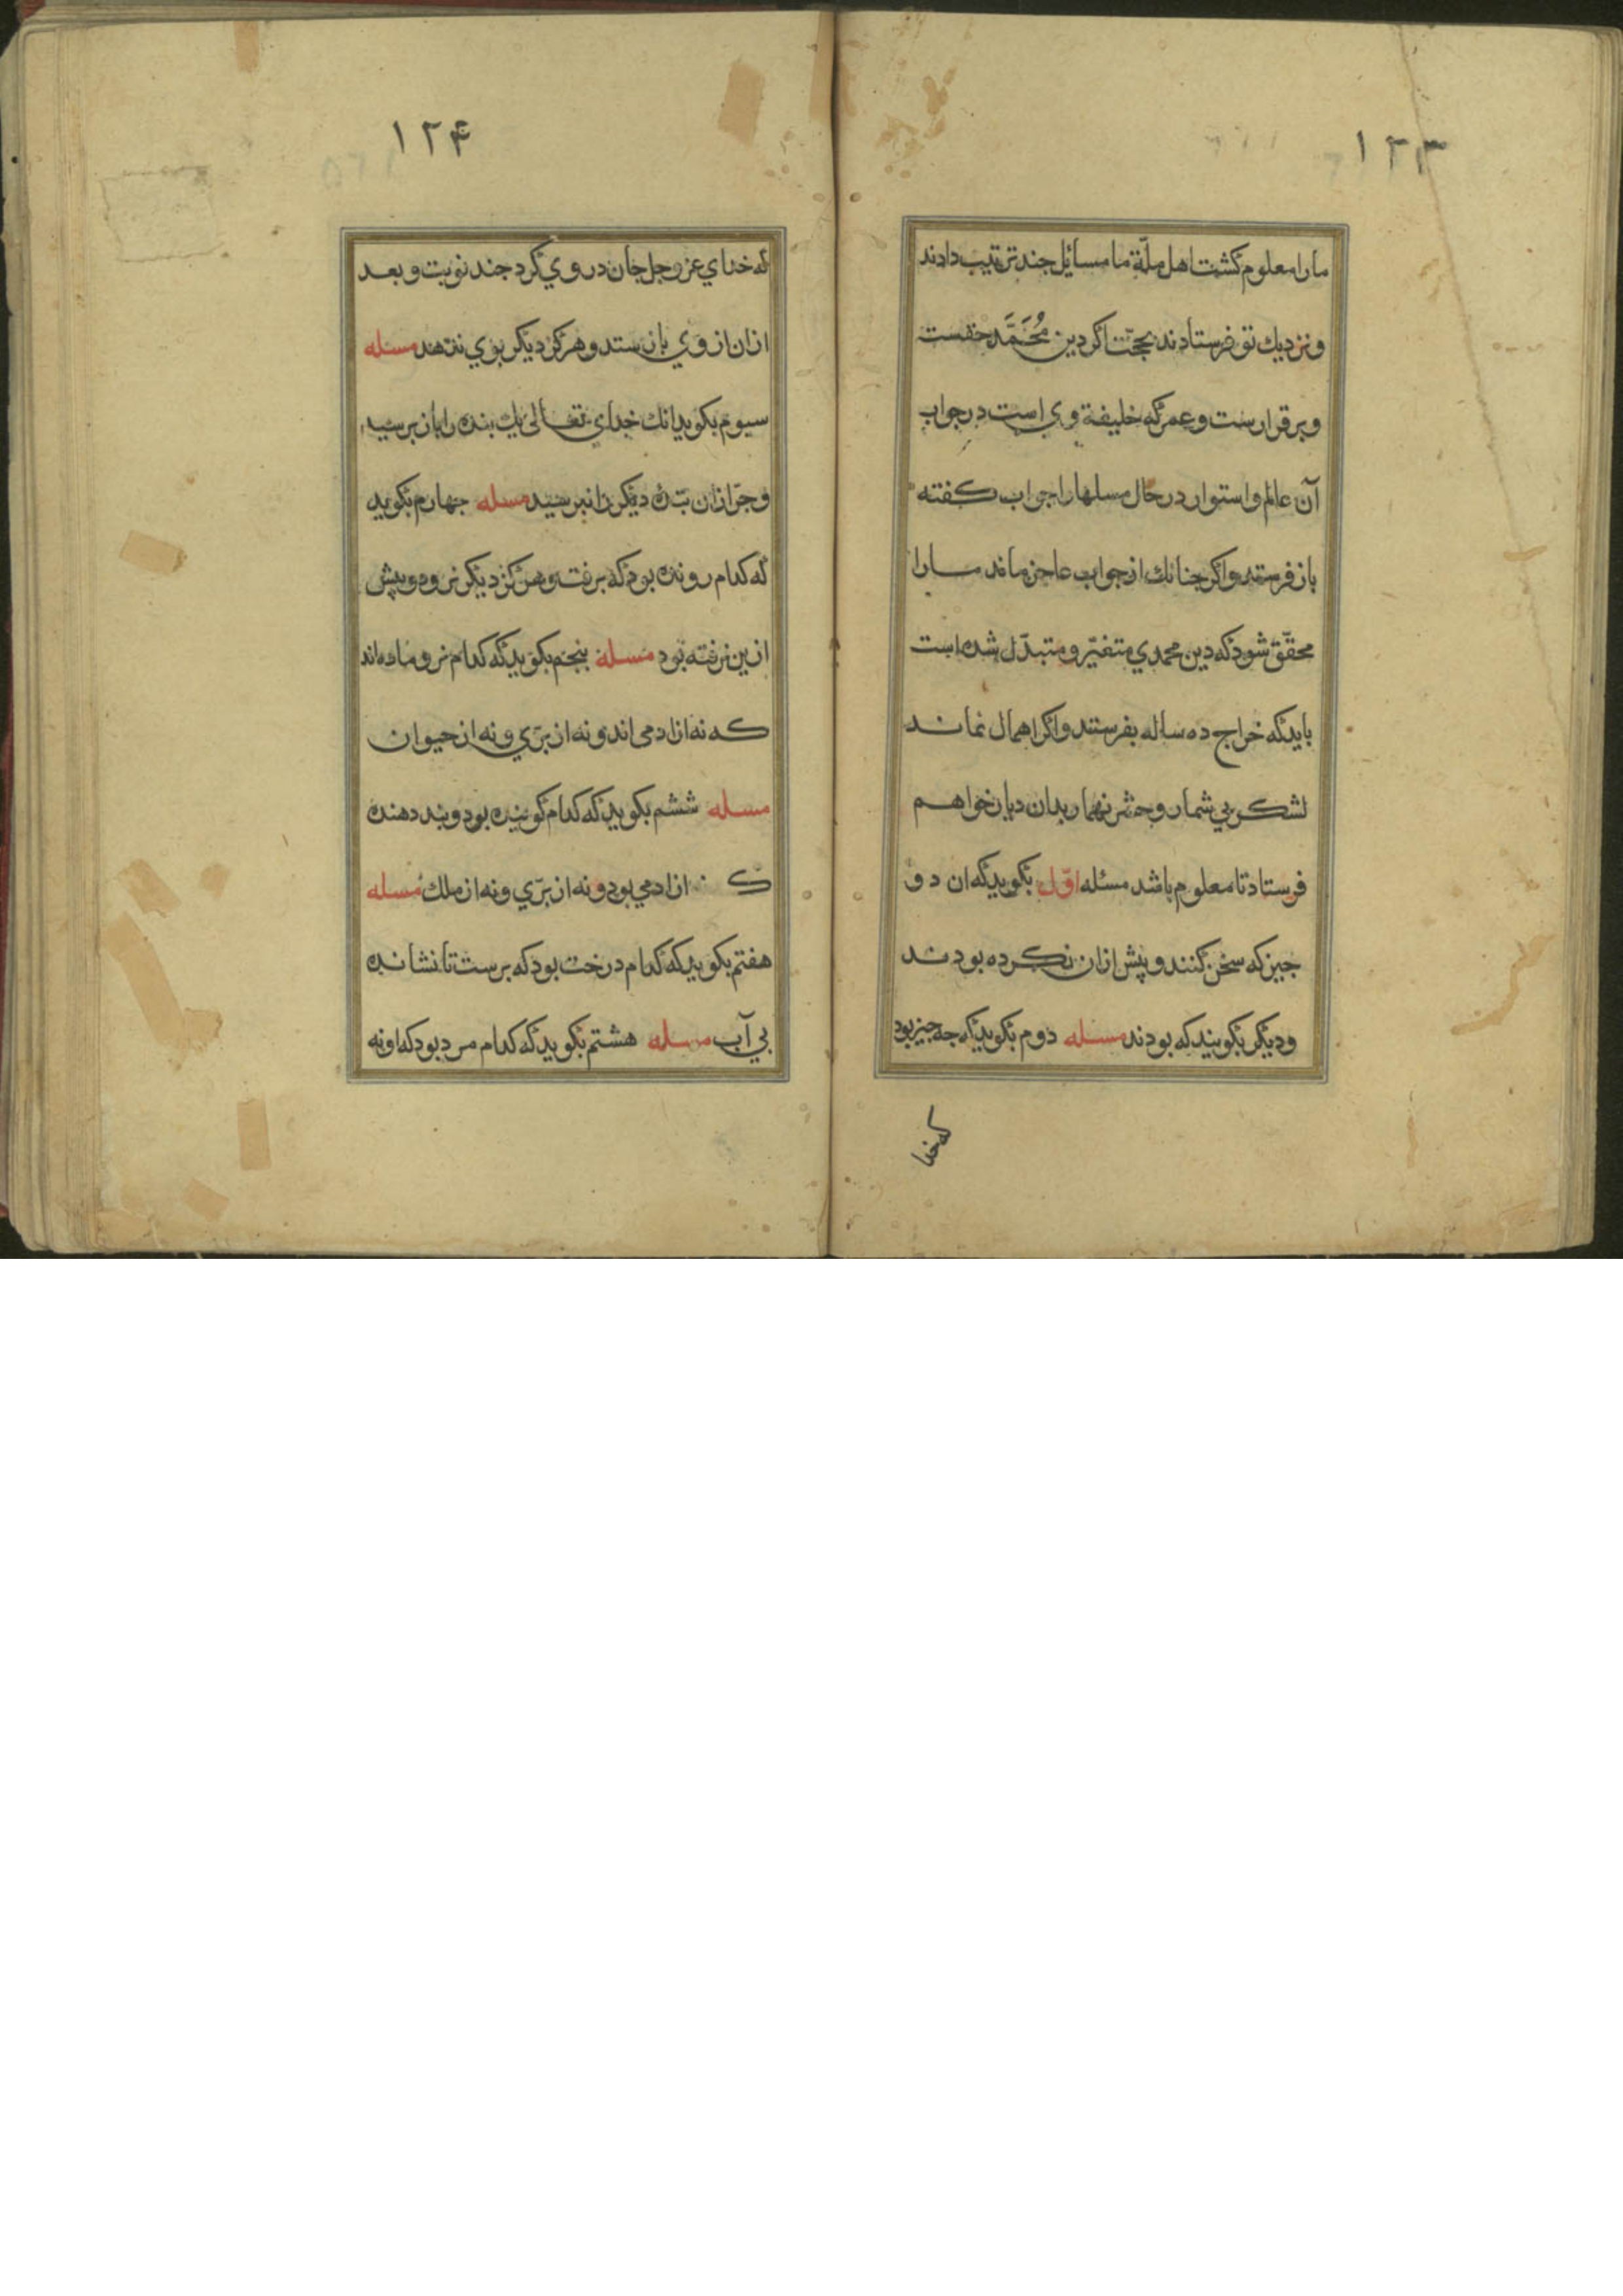 ۱۲۳
مارا معلوم کشت اهل ملّة ما مسائل جند ترتیب دادند
ونزدیك تو فرستادند بحجّت اکر دین مُحَمَّد حقست
وبرقرارست وعمر که خلیفة وی است در جواب
آن عالم واستوار در حال مسلها را جواب کفته
باز فرستد واکر جنانك از جواب عاجز ماند مارا
محقّق شود که دین محمدي متغیّر و متبدّل شده است
باید که خراج ده ساله بفرستند واکر اهمال نماند
لشکر بي شمار وحشر بدان دیار خواهم
فرستاد تا معلوم باشد مسئله اوّل بکوید که ان دو
جیز که سخن کنند و پیش ازان نکرده بودند
ودیکر بکویند که بودند مسله دوم بکوید که جه جیز بود
که خدا
۱۲۴
که خدای عز وجل جان در وي کرد جند نوبت و بعد
ازان از وي باز ستد و هرکز دیکر بوي ندهد مسله
سیوم بکوید انك خدای تعالی یك بنده را بان برسید
وجز ازان بنده دیکر را نبرسید مسله جهارم بکوید
که کدام رونده بود که برفت و هرکز دیکر نرود و پیش
ازین نرفته بود مسله بنجم بکوید که کدام نر و ماده اند
که نه از ادمی اند و نه از برّي و نه از حیوان
مسله ششم بکوید که کدام کوینده بود و بند دهنده
ک از ادمي بود و نه از برّي و نه از ملك مسله
هفتم بکوید که کدام درخت بود که برست تا نشانده
بي آب مسله هشتم بکوید که کدام مرد بود که او نه